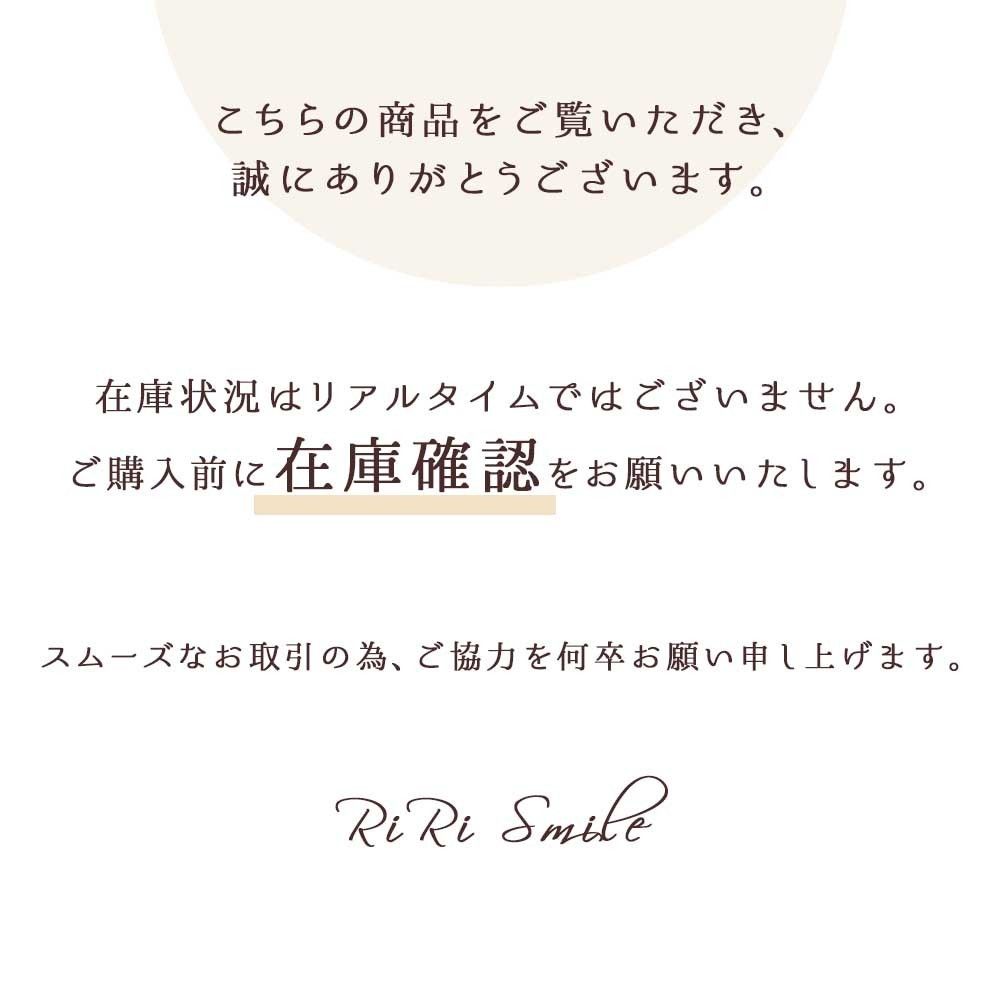 こちらの商品をご覧いただき、
誠にありがとうございます。
在庫状況はリアルタイムではございません。
ご購入前に在庫確認をお願いいたします。
スムーズなお取引の為、ご協力を何卒お願い申し上げます。
RiRi Smile